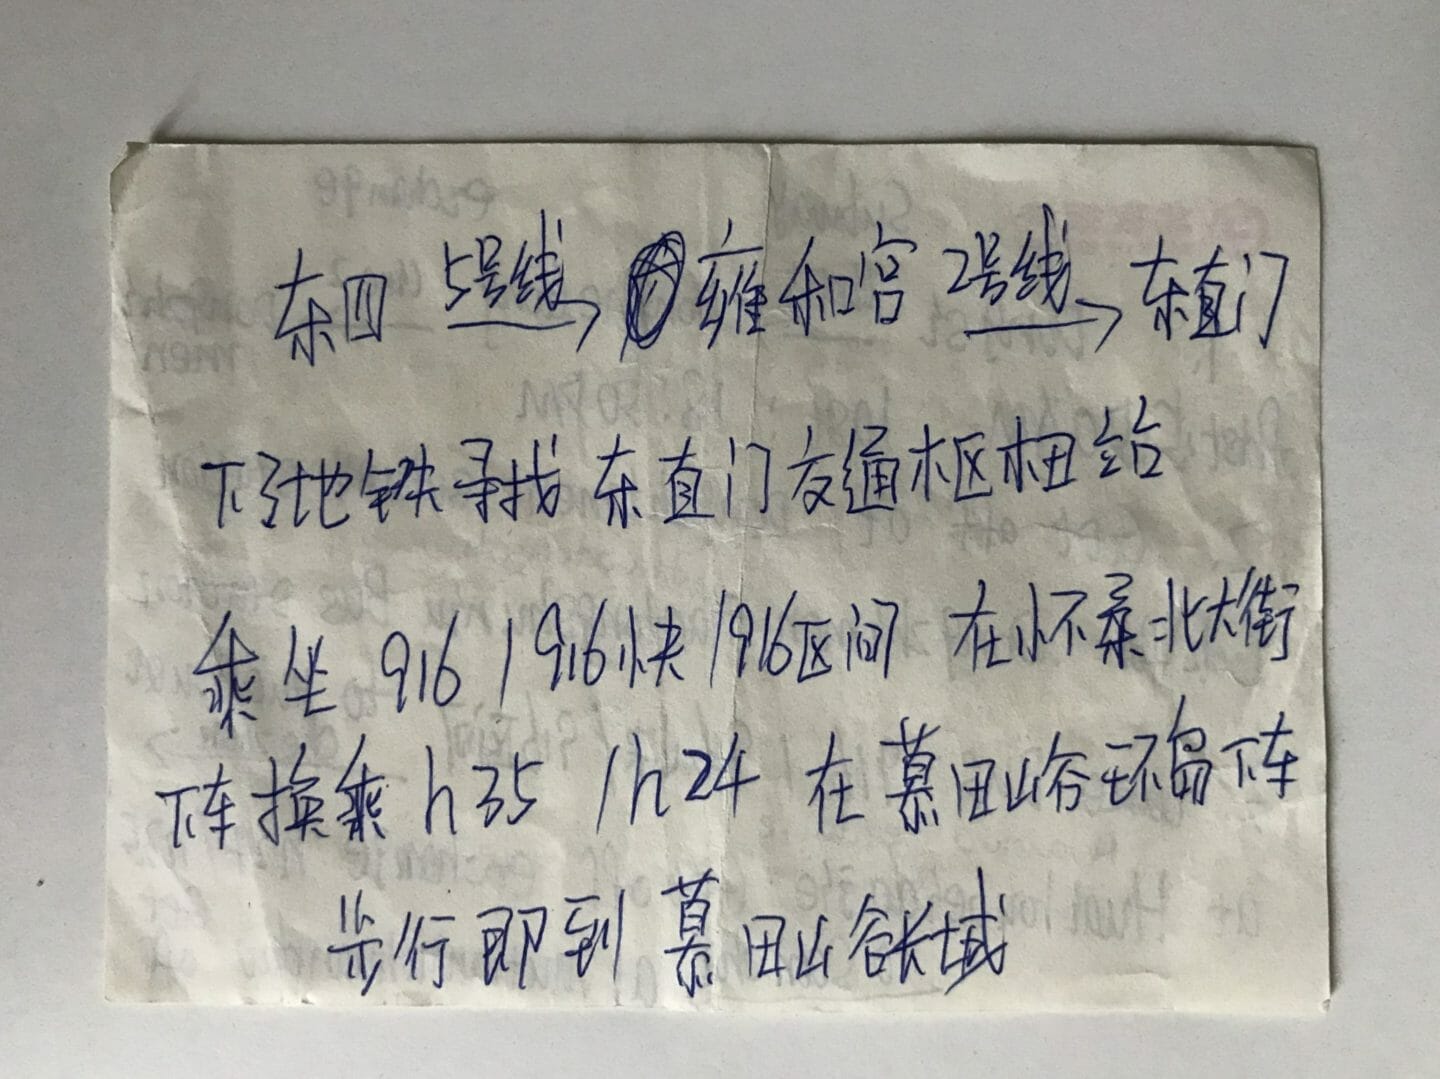 东四 5号线→ 雍和宫 2号线→ 东直门
下了地铁寻找东直门交通枢杻台
乘坐 916 / 916快 / 916区间 在怀柔北大街
下车换乘 h35 / h24 在慕田峪环岛下车
步行即到慕田峪长城